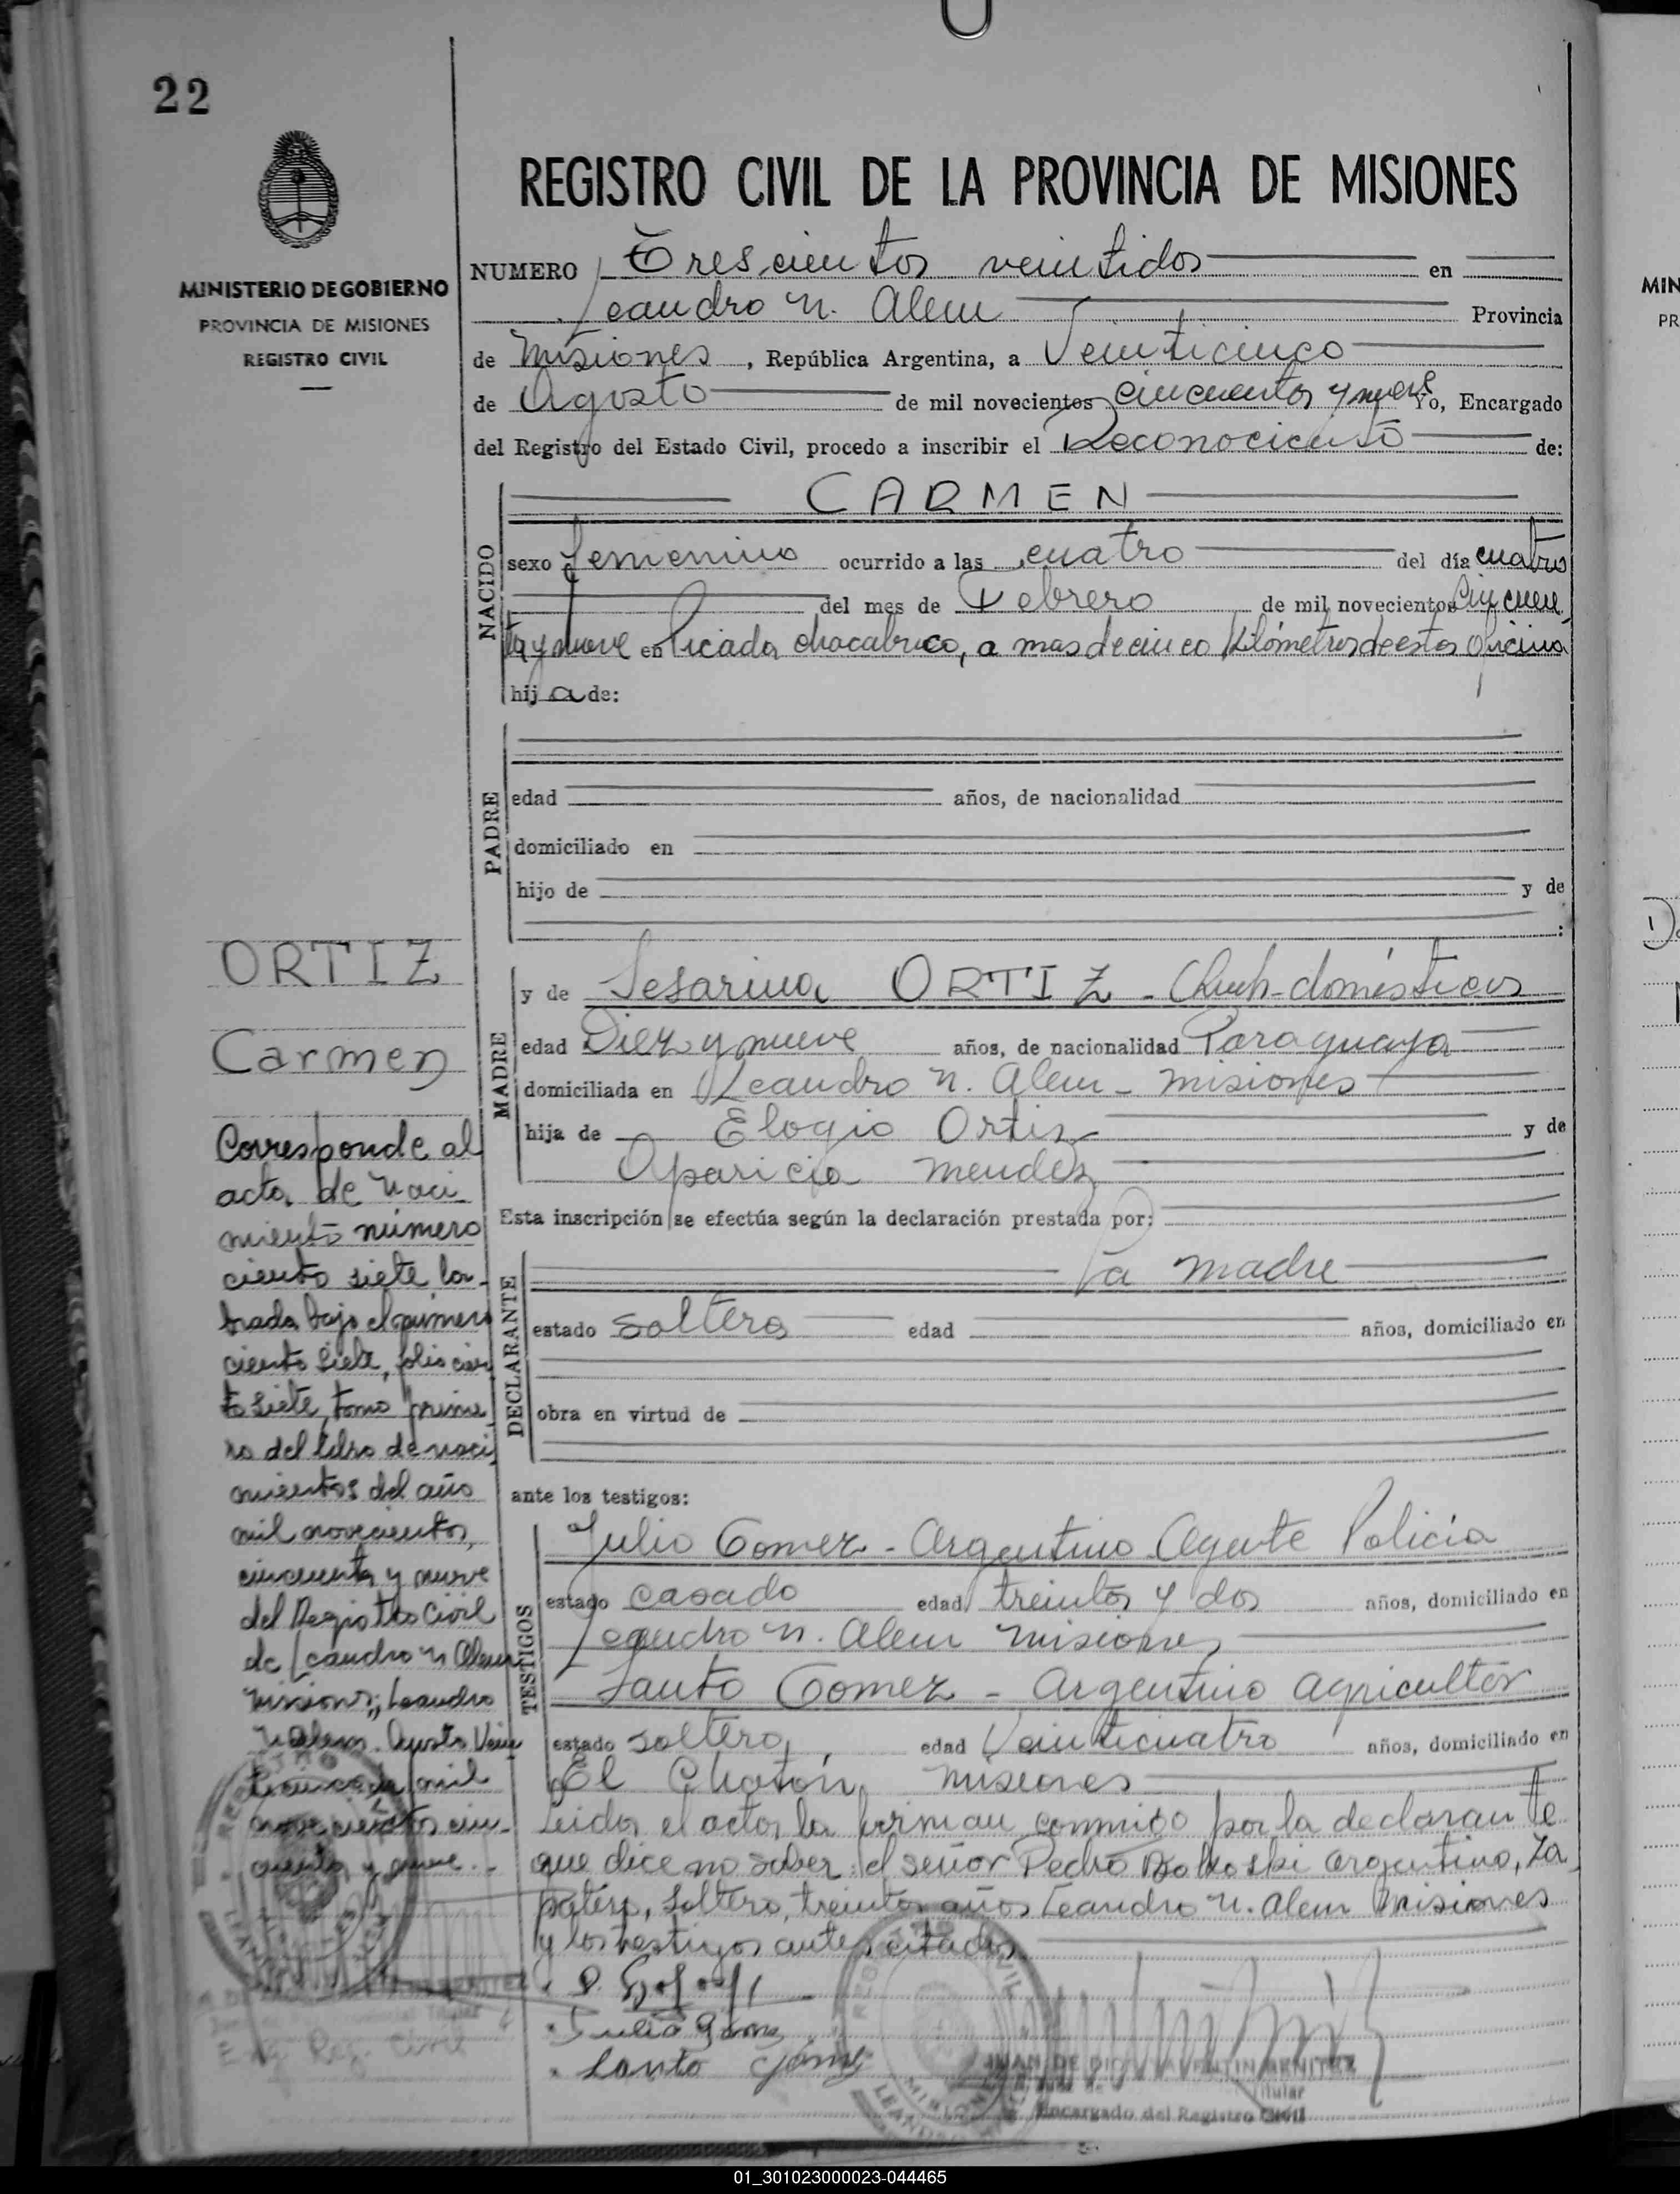 22
MINISTERIO DE GOBIERNO
PROVINCIA DE MISIONES
REGISTRO CIVIL
REGISTRO CIVIL DE LA PROVINCIA DE MISIONES
NUMERO Trescientos veintidos en
Leandro N. Alem Provincia
de Misiones, República Argentina, a Veinticinco
de Agosto de mil novecientos cincuenta y nueve Yo, Encargado
del Registro del Estado Civil, procedo a inscribir el Reconocimiento de:
NACIDO
CARMEN
sexo femenino ocurrido a las cuatro del día cuatro
del mes de Febrero de mil novecientos cincuen
ta y nueve en Picada chacabuco, a mas de cinco Kilómetros de esta Oficina
hija de:
PADRE
edad años, de nacionalidad
domiciliado en
hijo de y de
:
MADRE
y de Sesarina ORTIZ - domésticos
edad Diez y nueve años, de nacionalidad Paraguaya
domiciliada en Leandro N. Alem - Misiones
hija de Elogio Ortiz y de
Aparicia Mendez
Esta inscripción se efectúa según la declaración prestada por:
DECLARANTE
La madre
estado soltera edad años, domiciliado en
obra en virtud de
ante los testigos:
TESTIGOS
Julio Gomez - Argentino Agente Policía
estado casado edad treinta y dos años, domiciliado en
Leandro N. Alem Misiones
Santo Gomez - Argentino agricultor
estado soltero, edad Veinticuatro años, domiciliado en
El Chatón, Misiones
Leida el acta la firman conmigo por la declarante
que dice no saber el señor Pedro argentino, Za
patero, soltero, treinta años Leandro N. Alem Misiones
y los testigos antes citados
Julio Gomez
Santo Gomez
JUAN DE DIOS VALENTIN BENITEZ
Titular
Encargado del Registro Civil
ORTIZ
Carmen
Corresponde al
acta de naci
miento número
ciento siete la-
brada bajo el número
ciento siete, folio cien
to siete, tomo prime
ro del libro de naci
mientos del año
mil novecientos
cincuenta y nueve
del Registro Civil
de Leandro N Alem
Misiones, Leandro
N Alem. Agosto Vein
ticinco de mil
novecientos cin-
cuenta y nueve.
Enc. Reg. Civil
01_301023000023-044465